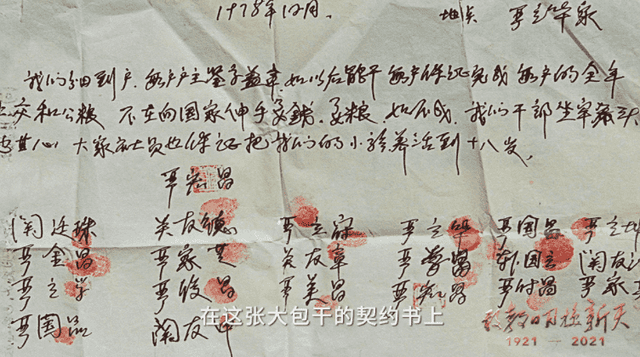 1978年12月. 地点 严立华家
我们分田到户.每户户主签字盖章.如以后能干每户保证完成每户的全年
上交和公粮 不在向国家伸手要钱.要粮 如不成.我们干部坐牢杀头
也甘心 大家社员也保证把我们的小孩养活到十八岁.
严宏昌
关廷珠 关友德 严立付 严立华 严国昌 严立坤
严金昌 严家芝 关友章 严学昌 韩国云 关友江
严立学 严俊昌 严美昌 严宏昌 严付昌 严家其
严国品 关友申
在这张大包干的契约书上
敢教日月换新天
1921 — 2021